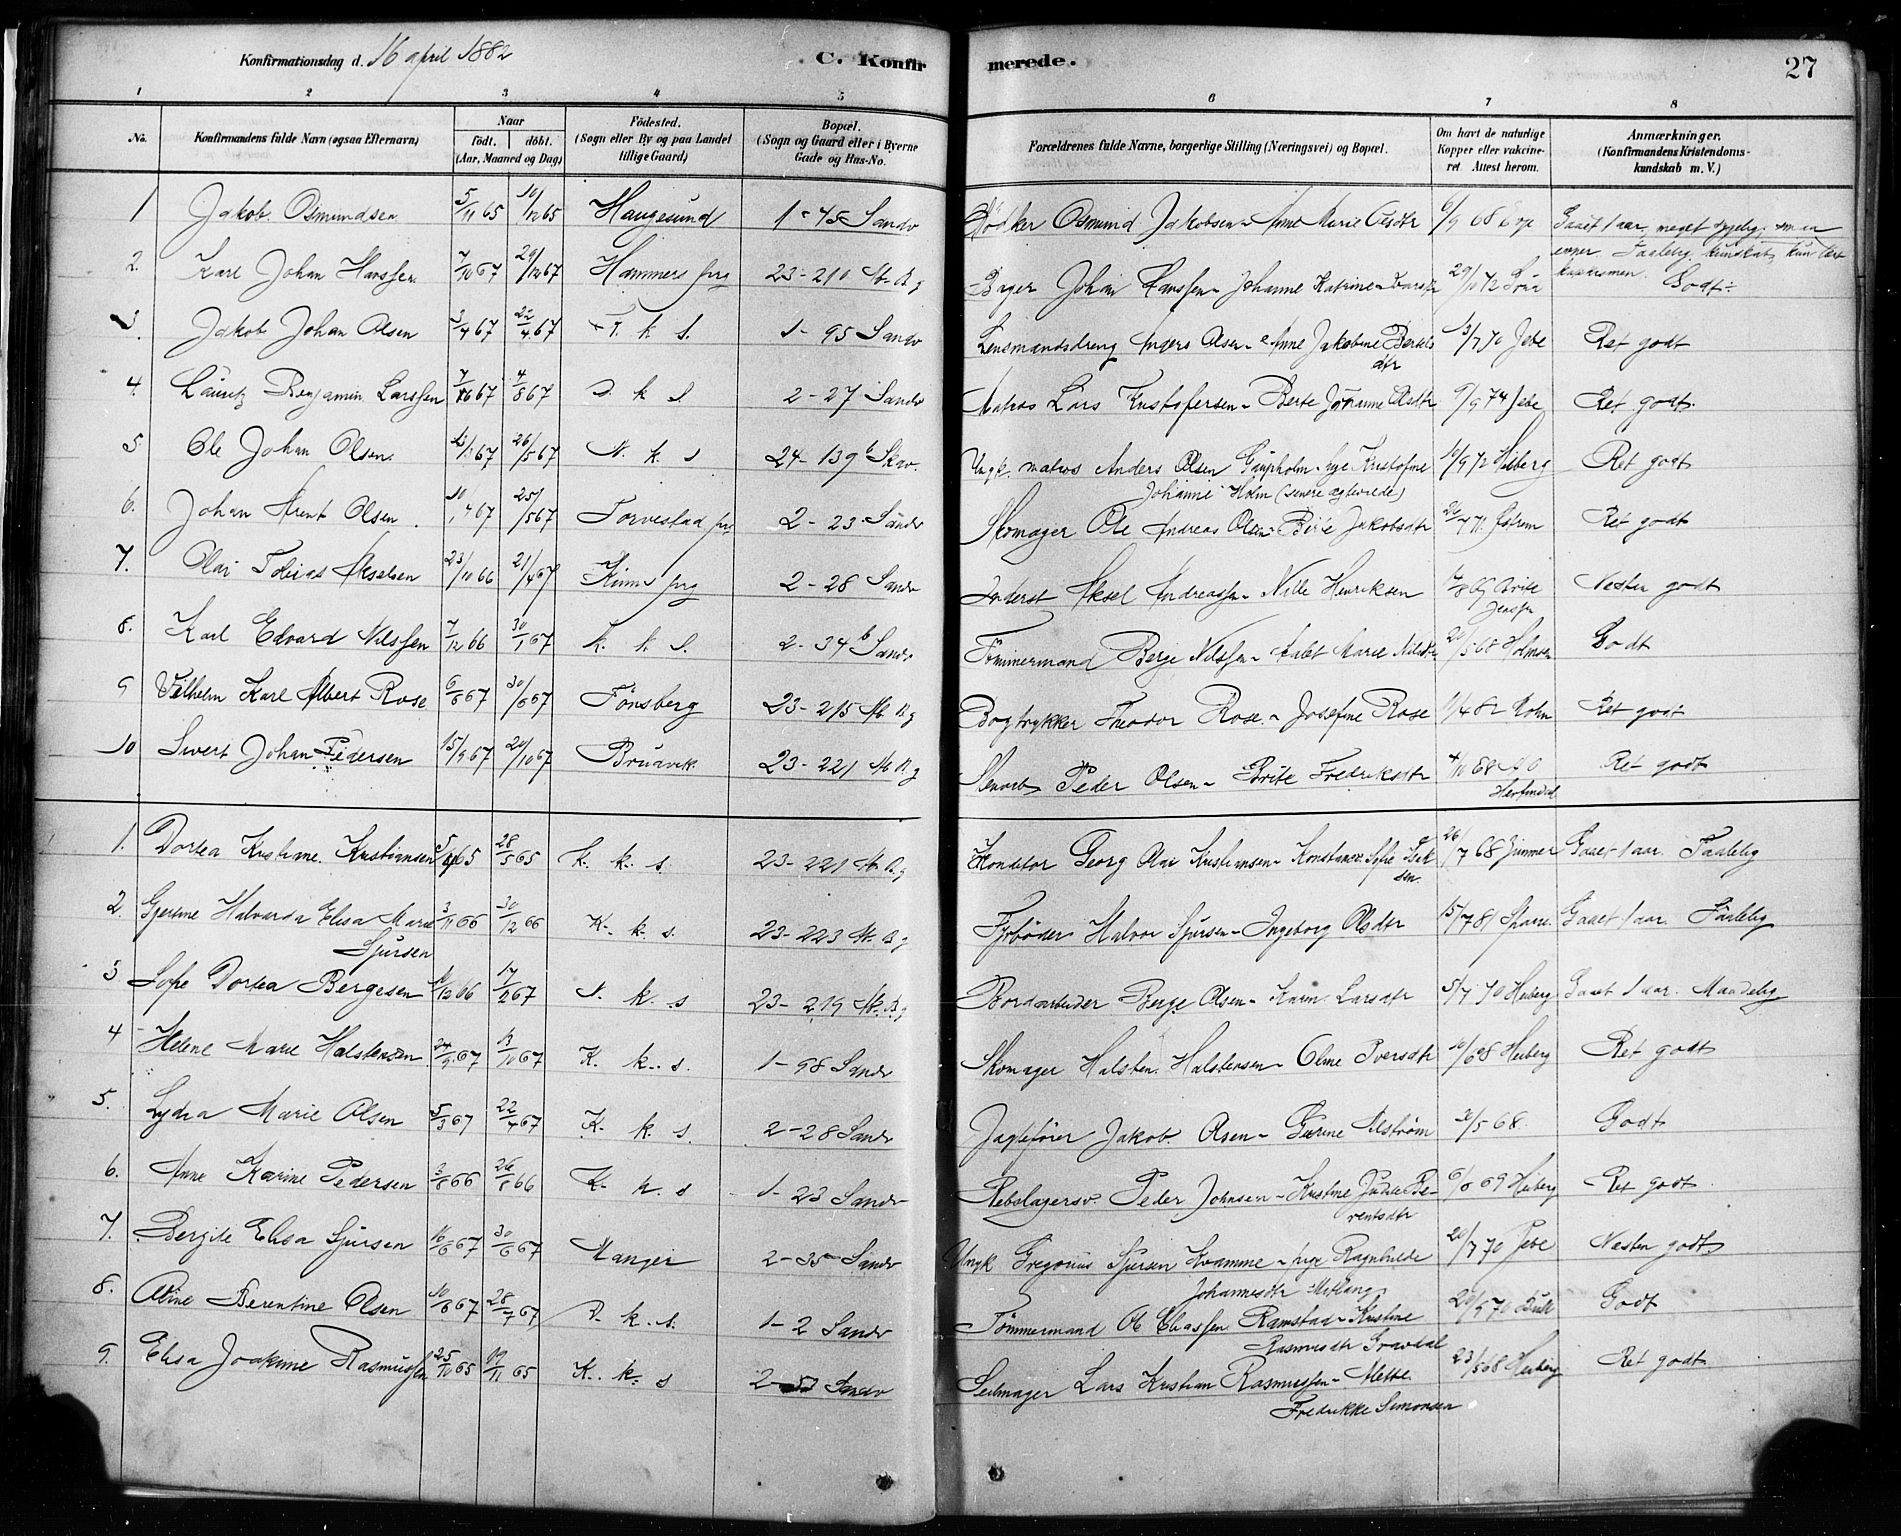 Konfirmationsdag d. 16 april 1882
C. Konfirmerede.
27
1 2 3 4 5 6 7 8
No.
Konfirmandens fulde Navn (ogsaa Efternavn)
Naar
født. døbt.
(Aar, Maaned og Dag)
Fødested.
(Sogn eller By og paa Landet
tillige Gaard)
Bopæl.
(Sogn og Gaard eller i Byerne
Gade og Hus-No.
Forældrenes fulde Navne, borgerlige Stilling (Næringsvei) og Bopæl.
Om havt de naturlige
Kopper eller vakcine-
ret. Attest herom.
Anmærkninger.
(Konfirmandens Kristendoms-
kundskab m. V.)
1 Jakob Osmundsen 5/11 65 10/12 65 Haugesund 1-45 Sandv Bødker Osmund Jakobsen - Anne Marie Olsdtr Gaaet 1 aar, meget
2. Karl Johan Hanssen 7/10 67 29/12 67 Hammers prg 23-210 Bager Johan Hanssen - Johanne Katrine Godt
3. Jakob Johan Olsen 3/4 67 22/4 67 k s. 1-95 Sandv Lensmandsdreng Olsen - Anne Jakobine Bertels
dtr 13/7 70 Jebe Ret godt
4. Lauritz Benjamin Larssen 4/8 67 k s 2-27 Sandv Matros Lars Kristofersen - Berte Johanne Olsdtr 9/9 74 Jebe Ret godt.
5 Ole Johan Olsen. 26/5 67 N. k. s 24-139 b Skiv. Ungk. matros Anders Olsen Gaupholm - pige Kristofine
Johanne Holm (senere ægteviede) Heiberg Ret godt
6. Johan Arent Olsen. 25/5 67 Torvestad prg 2-23 Sandv Skomager Ole Andreas Olsen - Brite Jakobsdtr Ret godt
7. Olai Tobias Akselsen 23/10 66 21/4 67 Kinns prg 2-28 Sandv Inderst Aksel Andreassen - Nille Henriksen Nesten godt
8. Karl Edvard Nilssen 7/12 66 30/1 67 k. k s. 2-34 b Sandv Tömmermand Berge Nilssen - Marie Nilsdtr 20/5 68 Holmsen Godt
9 Vilhelm Karl Albert Rose 6/6 67 30/6 67 Tönsberg 23-215 Bogtrykker Theodor Rose. - Josefine Rose Ret godt
10 Sivert Johan Pedersen 15/9 67 20/10 67 Bruvik. 23-221 Stenarb Peder Olsen - Brite Fredriksdtr Ret godt
1. Dortea Kristine Kristiansen 28/5 65 k. k. s. 23-221 Konditor Georg Olai Kristiansen - Konstance Sofie
26/7 68 Gaaet 1 aar. Taalelig
2. Gjertine Halvarda Elisa Marie
Sjursen 3/11 66 30/12 66 K. k. s. 23-223 Fyrbøder Halvor Sjursen - Ingeborg Olsdtr 15/7 81 Gaaet 1 aar. Taalelig
3 Sofie Dortea Bergesen 17/2 67 N. k. s 23-219 Bordarbeider Berge Olsen - Karen Larsdtr 5/7 70 Heiberg Gaaet 1 aar. Maadelig
4 Helene Marie Halstensen 24/9 67 13/10 67 K. k. s. 1-98 Sandv Skomager Halsten Halstensen - Oline Iversdtr Heiberg Ret godt
5. Lydia Marie Olsen 5/3 67 22/4 67 K. k. s. 2-28 Sandv Jagtefører Jakob Olsen - Alström 20/5 68. Godt
6. Anne Karine Pedersen 3/8 66 26/8 66 K. k. s 1-23 Sandv Rebslagersv. Peder Johnsen - Kristine Be-
rentsdtr 6/8 69 Heiberg Ret godt.
7. Bergite Elisa Sjursen 16/6 67 30/6 67 Manger 2-35 Sandv Ungk Gregorius Sjursen Kvamme - pige Ragnhilde
Johannesdtr 20/7 70 Jebe Nesten godt
8. Oline Berentine Olsen 28/7 67 D. k. s. 1-2 Sandv Tömmermand Ole Eliassen Ramstad - Kristine
Rasmusdtr Gravdal 20/9 70 Godt
9. Elisa Joakime Rasmussen 25/10 65 19/11 65 K. k. s 2- Sandv Seilmager Lars Kristian Rasmussen - Mette
Fredrikke Simonsen 23/5 68 Heiberg Ret godt.